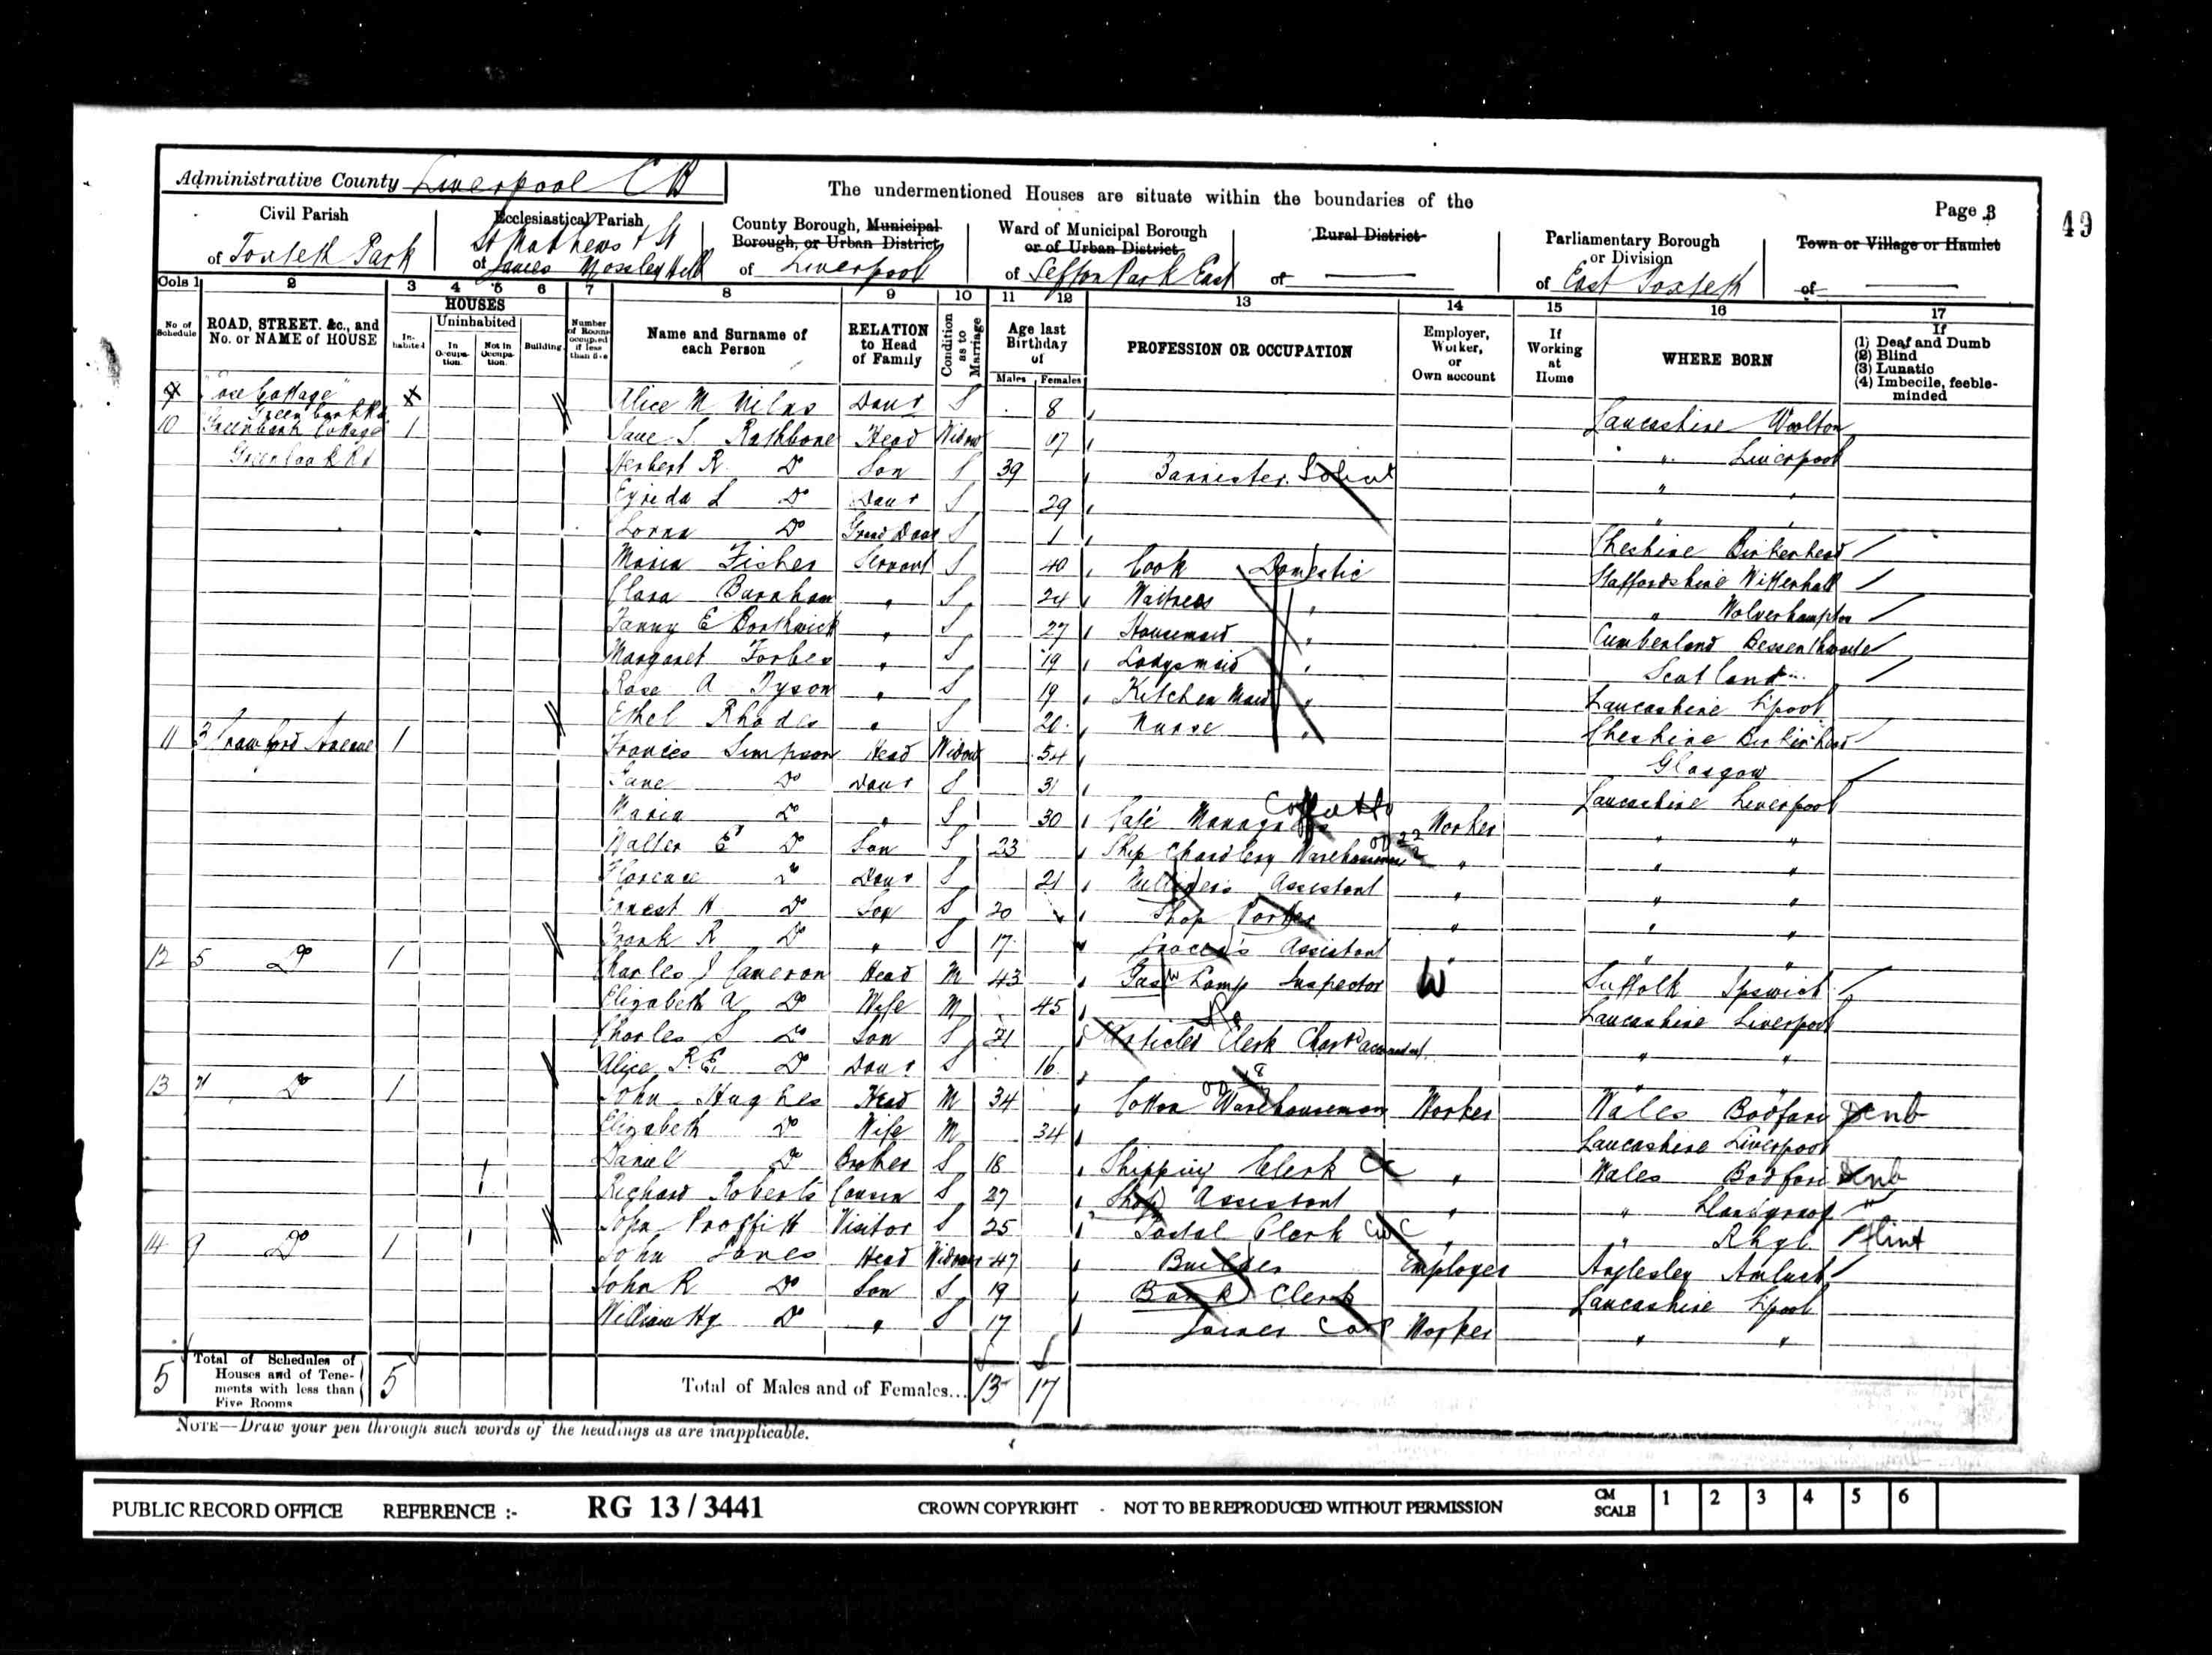 Administrative County Liverpool C B
The undermentioned Houses are situate within the boundaries of the
Page 3
49
Civil Parish
of Toxteth Park
Ecclesiastical Parish
of St Mathews & St James Mossley Hill
County Borough, Municipal Borough, or Urban District
of Liverpool
Ward of Municipal Borough or of Urban District
of Sefton Park East
Rural District
of
Parliamentary Borough or Division
of East Toxteth
Town or Village or Hamlet
of
Cols 1 2 3 4 5 6 7 8 9 10 11 12 13 14 15 16 17
No of Schedule
ROAD, STREET, &c., and No. or NAME of HOUSE
HOUSES
Inhabited
Uninhabited
In Occupation.
Not in Occupation.
Building.
Number of Rooms occupied if less than five
Name and Surname of each Person
RELATION to Head of Family
Condition as to Marriage
Age last Birthday of
Males Females
PROFESSION OR OCCUPATION
Employer, Worker, or Own account
If Working at Home
WHERE BORN
If
(1) Deaf and Dumb
(2) Blind
(3) Lunatic
(4) Imbecile, feeble-minded
Cottage Alice M Daur S 8 Lancashire Woolton
10 Greenbank Cottage 1 Jane S Rathbone Head Widow " Liverpool
Greenbank Rd Herbert R Do Son S 39 Barrister " "
L Do Daur S 29 " "
Lorna Do Grand Daur S 1 Cheshire Birkenhead
Maria Fisher Servant S 40 Cook Domestic Staffordshire Willenhall
Clara Burnham " S 24 Waitress " " Wolverhampton
Fanny E Borthwick " S 27 Housemaid " Cumberland Bassenthwaite
Margaret Forbes " S 19 Ladysmaid " Scotland
Rose A Tyson " S 19 Kitchen Maid " Lancashire L'pool
Ethel Rhodes " S 20 Nurse " Cheshire Birkenhead
11 3 Crawford Avenue 1 Frances Simpson Head Widow 54 Glasgow
Jane Do Daur S 31 Lancashire Liverpool
Maria Do " S 30 Café Worker " "
Walter E Do Son S 23 Ship Chandlery Warehouseman " " "
Florence Do Daur S 21 Milliner's Assistant " " "
Ernest H Do Son S 20 Shop Porter " " "
Frank R Do " S 17 Grocer's Assistant " " "
12 5 Do 1 Charles J Cameron Head M 43 Gas Lamp Inspector W Suffolk Ipswich
Elizabeth A Do Wife M 45 Lancashire Liverpool
Charles S Do Son S 21 Articled Clerk Chartd accountant " "
Alice R E Do Daur S 16 "
13 7 Do 1 John Hughes Head M 34 Cotton Warehouseman Worker Wales Bodfari Denb
Elizabeth Do Wife M 34 Lancashire Liverpool
Daniel Do Brother S 18 Shipping Clerk " Wales Bodfari Denb
Richard Roberts Cousin S 27 Shop Assistant " "
John Proffitt Visitor S 25 Postal Clerk " " Rhyl Flint
14 9 Do 1 John Jones Head Widower 47 Builder Employer Anglesley Amlwch
John R Do Son S 19 Bank Clerk Lancashire L'pool
William Hy Do " S 17 Joiner Worker " "
5 Total of Schedules of Houses and of Tenements with less than Five Rooms 5
Total of Males and of Females... 13 17
NOTE—Draw your pen through such words of the headings as are inapplicable.
PUBLIC RECORD OFFICE REFERENCE :- RG 13 / 3441 CROWN COPYRIGHT - NOT TO BE REPRODUCED WITHOUT PERMISSION CM SCALE 1 2 3 4 5 6